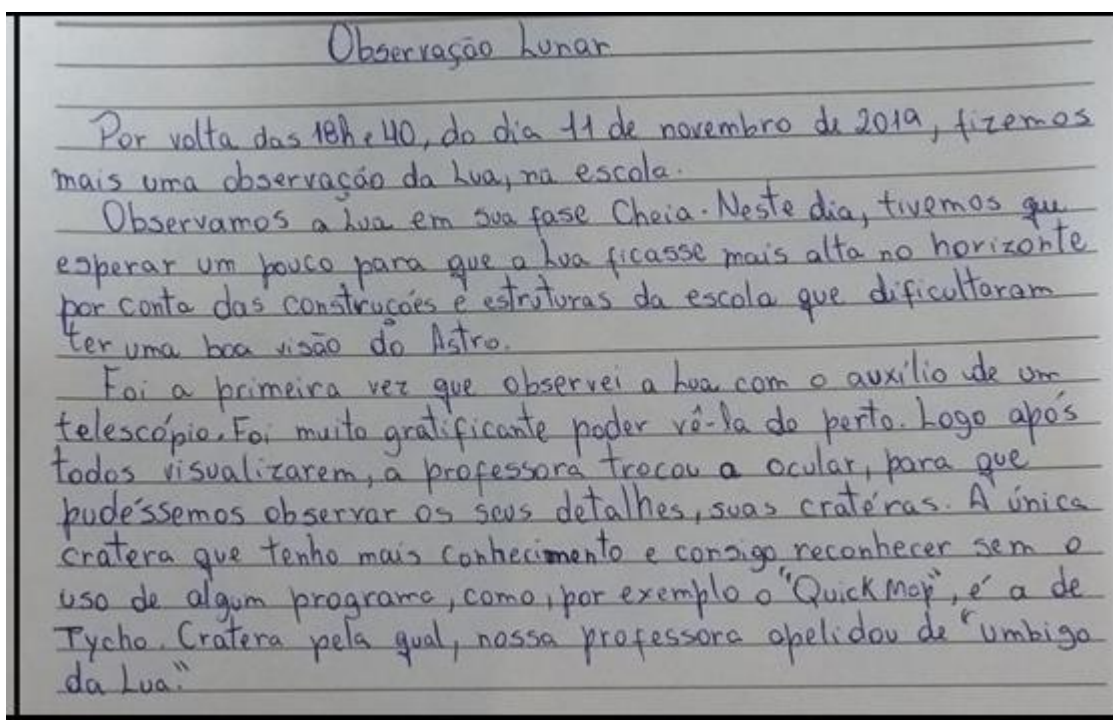 Observação Lunar
Por volta das 18h e 40, do dia 11 de novembro de 2019, fizemos
mais uma observação da Lua, na escola.
Observamos a Lua em sua fase Cheia. Neste dia, tivemos que
esperar um pouco para que a Lua ficasse mais alta no horizonte
por conta das construções e estruturas da escola que dificultaram
ter uma boa visão do Astro.
Foi a primeira vez que observei a Lua com o auxílio de um
telescópio. Foi muito gratificante poder vê-la de perto. Logo após
todos visualizarem, a professora trocou a ocular, para que
pudéssemos observar os seus detalhes, suas cratéras. A única
cratera que tenho mais conhecimento e consigo reconhecer sem o
uso de algum programa, como, por exemplo o "Quick Map", é a de
Tycho. Cratera pela qual, nossa professora apelidou de "umbigo
da Lua."